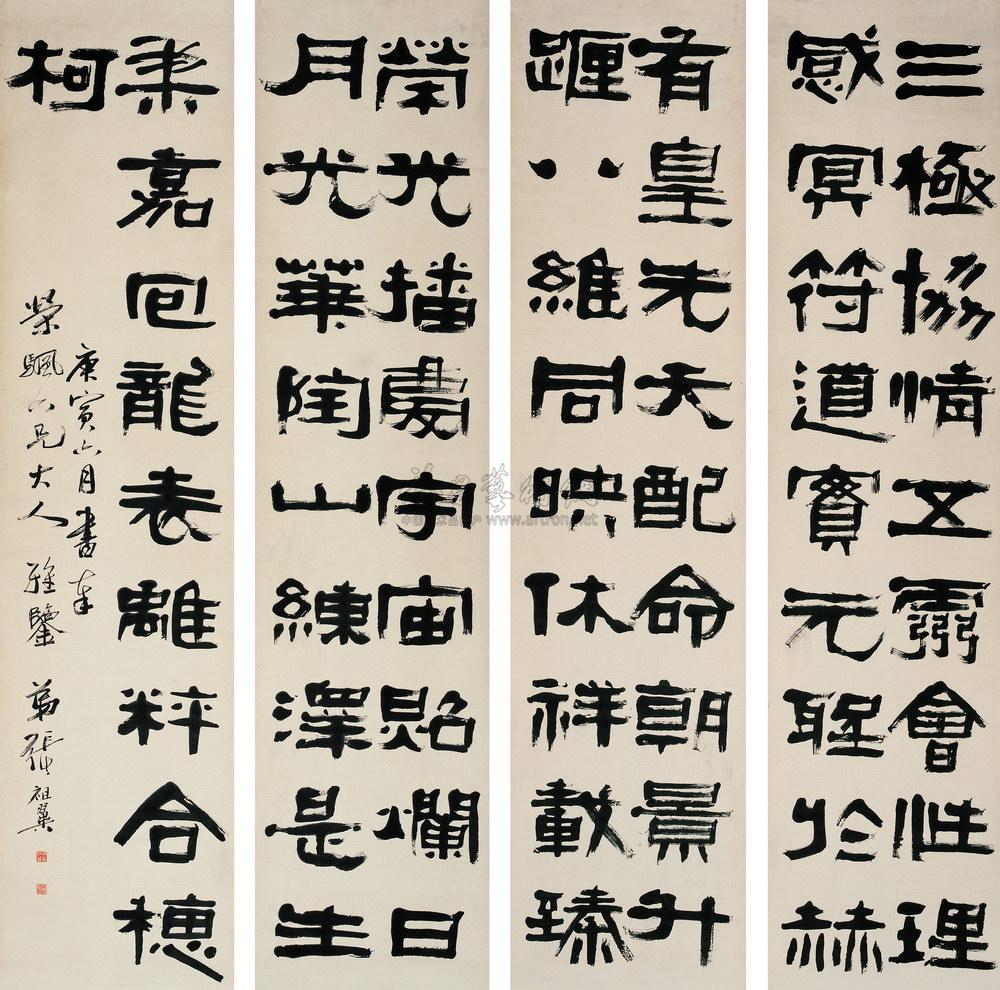 三極協情五靈會性理
感冥符道實元聖於赫
有皇先天配命朝景升
躔八維同映休祥載臻
榮光播處宇宙貽爛日
月光華陶山練澤是生
柔嘉回龍表離粹合穗
柯
庚寅六月書奉
榮颿六兄大人雅鑒 弟張祖翼
www.artron.net